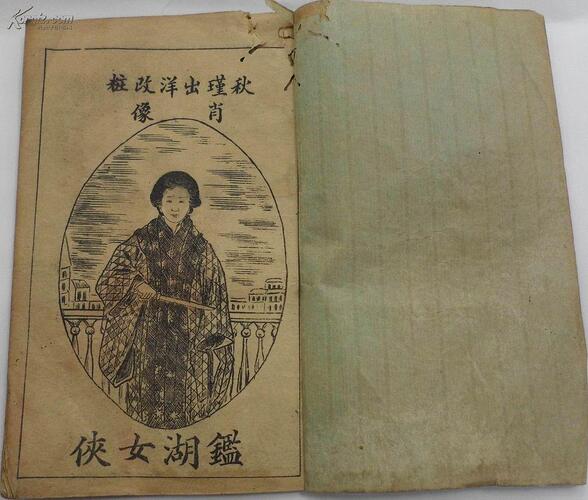 秋瑾出洋改粧
肖像
鑑湖女俠